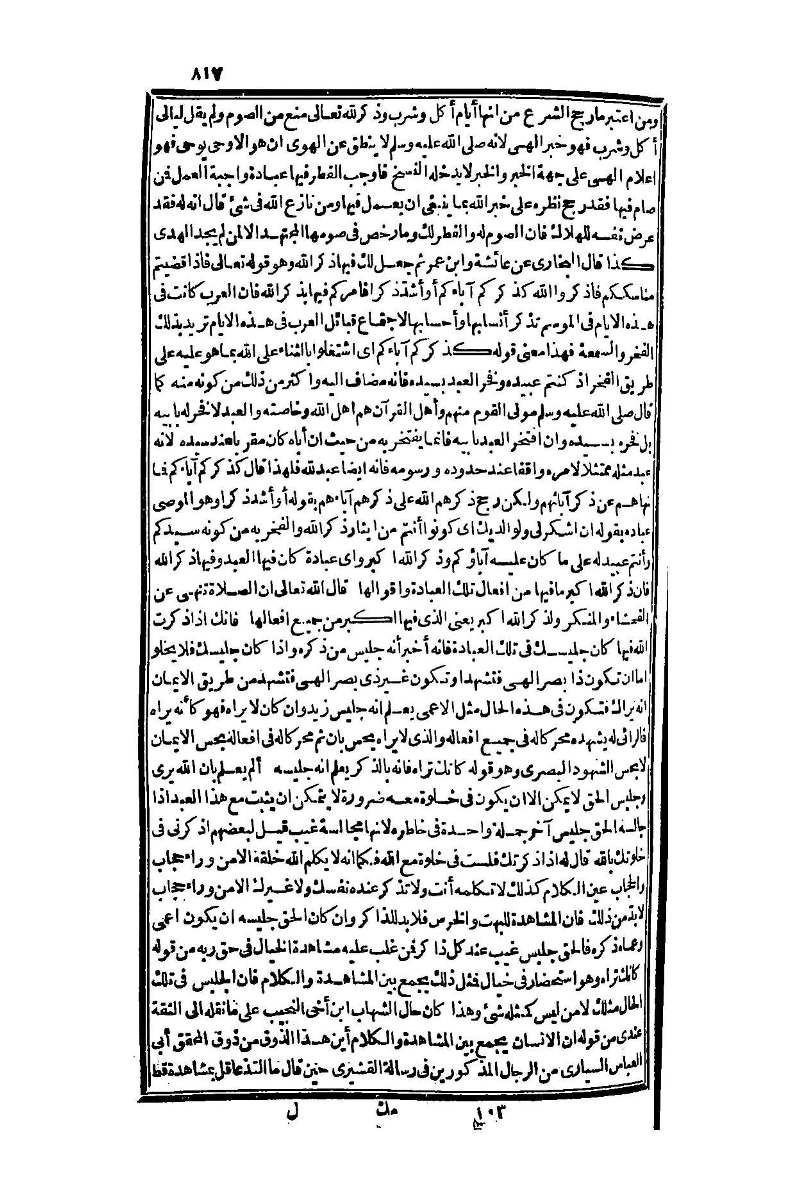 ٨١٧
ومن اعتبر مارجح الشرع من انها أيام أكل وشرب وذكر لله تعالى منع من الصوم ولم يقل ليالى
أكل وشرب فهو خبر الهى لانه صلى الله عليه وسلم لا ينطق عن الهوى ان هو الاوحى يوحى فهو
اعلام الهى على جهة الخبر والخبر لا يدخله النسخ فاوجب الفطر فيها عبادة واجبة العمل فمن
صام فيها فقد رجح نظره على خبر الله بما ينبغى ان يعمل فيها ومن نازع الله فى شئ قال انه له فقد
عرض نفسه للهلاك فان الصوم له والفطر لك وما رخص فى صومها المجتهد الا لمن لم يجد الهدى
كذا قال البخارى عن عائشة وابن عمر ثم جعل لك فيها ذكر الله وهو قوله تعالى فاذا قضيتم
مناسككم فاذكروا الله كذكركم آباءكم أو أشد ذكرا فامركم فيها بذكر الله فان العرب كانت فى
هذه الايام فى الموسم تذكر أنسابها وأحسابها لاجتماع قبائل العرب فى هذه الايام تريد بذلك
الفخر والسمعة فهذا معنى قوله كذكركم آباءكم اى اشتغلوا بالثناء على الله بما هو عليه على
طريق الفخر اذ كنتم عبيده وفخر العبد بسيده فانه مضاف اليه واكثر من ذلك من كونه منه كما
قال صلى الله عليه وسلم مولى القوم منهم وأهل القرآن هم اهل الله وخاصته والعبد لا فخر له بابيه
بل فخره بسيده وان افتخر العبد بابيه فانما يفتخر به من حيث ان أباه كان مقربا عند سيده لانه
عبد مثله ممتثلا لامره واقفا عند حدوده ورسومه فانه ايضا عبد لله فلهذا قال كذكركم آباءكم فما
نهاهم عن ذكر آبائهم ولكن رجح ذكرهم الله على ذكرهم آباءهم بقوله أو أشد ذكرا وهو الموصى
عباده بقوله ان اشكر لى ولوالديك اى كونوا أنتم من ايثار ذكر الله والفخر به من كونه سيدكم
وأنتم عبيد له على ما كان عليه آباؤكم وذكر الله اكبر واى عبادة كان فيها العبد وفيها ذكر الله
فان ذكر الله اكبر ما فيها من افعال تلك العبادة واقوالها قال الله تعالى ان الصلاة تنهى عن
الفحشاء والمنكر ولذكر الله اكبر يعنى الذى فيها اكبر من جميع افعالها فانك اذا ذكرت
الله فيها كان جليسك فى تلك العبادة فانه أخبر أنه جليس من ذكره واذا كان جليسك فلا يخلو
اما ان تكون ذا بصر الهى فتشهد او تكون غير ذى بصر الهى فتشهد من طريق الايمان
انه يراك فتكون فى هذه الحال مثل الاعمى يعلم انه جليس زيد وان كان لا يراه فهو كأنه يراه
فالرائى له يشهده محركا له فى جميع افعاله والذى لا يراه يحس بان ثم محركا له فى افعاله بحس الايمان
لا بحس الشهود البصرى وهو قوله كانك تراه فانه بالذكر يعلم انه جليسه ألم يعلم بان الله يرى
وجليس الحق لا يمكن الا ان يكون فى خلوة معه ضرورة لا يتمكن ان يثبت مع هذا العبد اذا
جالسه الحق جليس آخر جملة واحدة فى خاطره لانها مجالسة غيب قيل لبعضهم اذكرنى فى
خلوتك بالله قال له اذا ذكرتك فلست فى خلوة مع الله فكما انه لا يكلم الله خلقه الا من وراء حجاب
والحجاب عين الكلام كذلك لا تكلمه أنت ولا تذكر عنده نفسك ولا غيرك الا من وراء حجاب
لابد من ذلك فان المشاهدة للبهت والخرس فلا بد للذاكر وان كان الحق جليسه ان يكون اعمى
وعماه ذكره فالحق جليس غيب عند كل ذاكر فمن غلب عليه مشاهدة الخيال فى حق ربه من قوله
كانك تراه وهو استحضار فى خيال فمثل ذلك يجمع بين المشاهدة والكلام فان الجليس فى تلك
الحال مثلك لا من ليس كمثله شئ وهذا كان حال الشهاب ابن أخى النجيب على ما نقله الى الثقة
عندى من قوله ان الانسان يجمع بين المشاهدة والكلام أين هذا الذوق من ذوق المحقق أبى
العباس السيارى من الرجال المذكورين فى رسالة القشيرى حين قال ما التذ عاقل بمشاهدة قط
١٠٣ مك ل